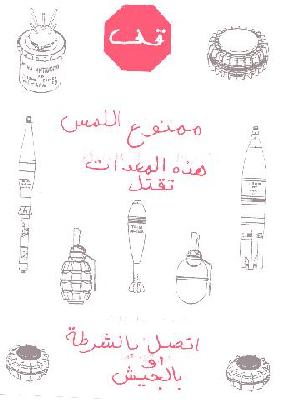 قف
ممنوع اللمس
هذه المعدات
تقتل
اتصل بالشرطة
او
بالجيش